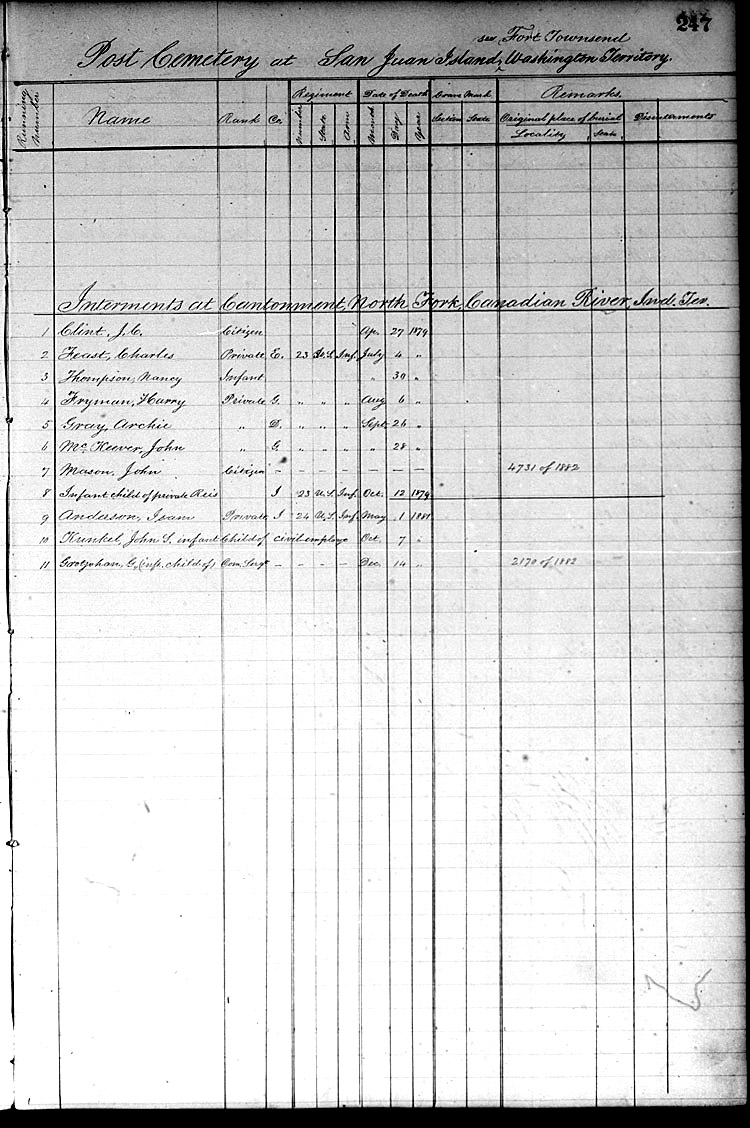 247
see Fort Townsend
Post Cemetery at San Juan Island, Washington Territory.
Running Number Name Rank Co. Regiment Date of Death Grave Mark Remarks.
Number State Arm Month Day Year Section State Original place of burial Disinterments
Locality State
Interments at Cantonment, North Fork, Canadian River, Ind. Ter.
1 Clint, J. C. Citizen Apr. 27 1879
2 Feast, Charles Private E. 23 U.S. Inf. July 4 "
3 Thompson, Nancy Infant " 30 "
4 Fryman, Harry Private G. " " " Aug 6 "
5 Gray, Archie " D. " " " Sept. 26 "
6 McKeever, John " G. " " " " 28 "
7 Mason, John Citizen – – – – – – – 4731 of 1882
8 Infant child of private Reis I 23 U.S. Inf. Oct. 12 1879
9 Anderson, Isam Private I 24 U.S. Inf. May 1 1881
10 Kunkel, John S. infant Child of civil employe Oct. 7 "
11 Grotjohan, G. (inft. child of) Com. Sergt – – – – Dec. 14 " 2170 of 1882